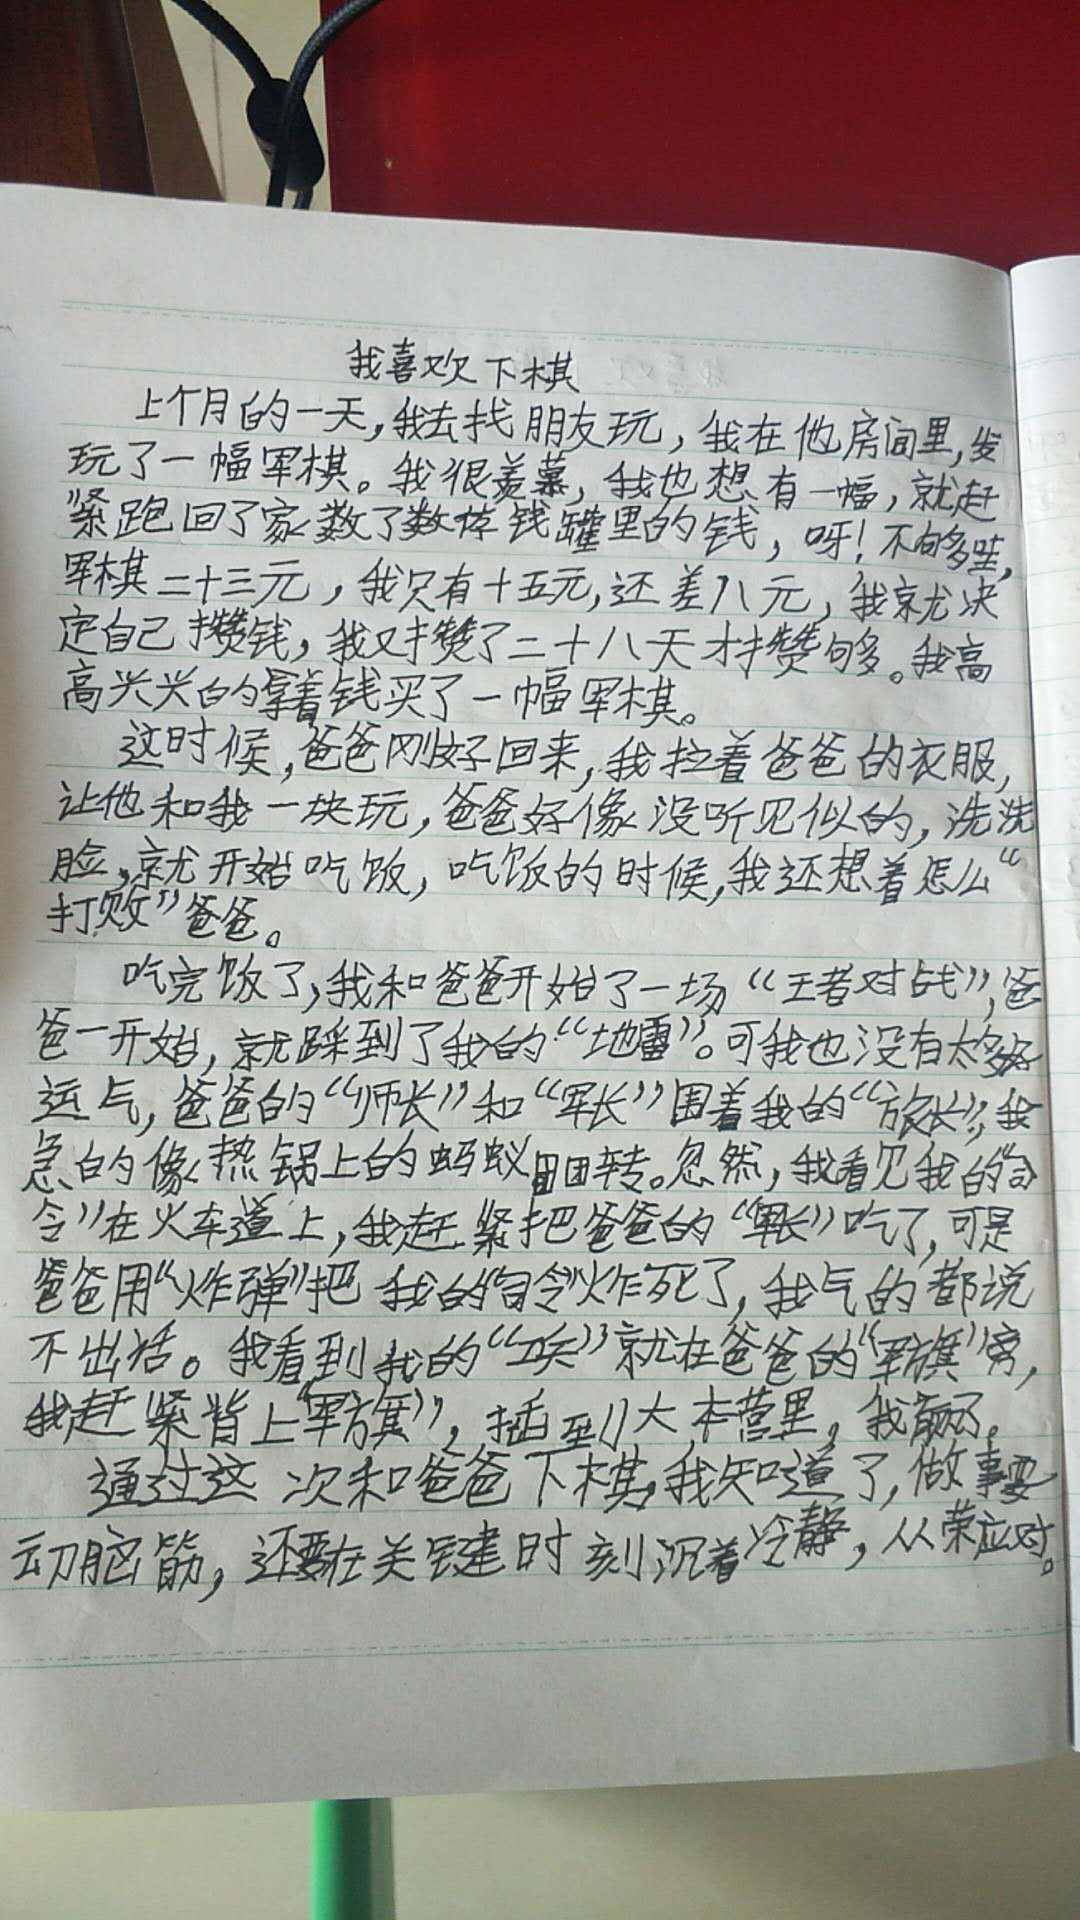 我喜欢下棋
上个月的一天，我去找朋友玩，我在他房间里，发
玩了一幅军棋。我很羡慕，我也想有一幅，就赶
紧跑回了家数了数存钱罐里的钱，呀！不够哇，
军棋二十三元，我只有十五元，还差八元，我就决
定自己攒钱，我又攒了二十八天才攒够。我高
高兴兴的拿着钱买了一幅军棋。
这时候，爸爸刚好回来，我拉着爸爸的衣服，
让他和我一块玩，爸爸好像没听见似的，洗洗
脸，就开始吃饭，吃饭的时候，我还想着怎么“
打败”爸爸。
吃完饭了，我和爸爸开始了一场“王者对战”，爸
爸一开始，就踩到了我的“地雷”。可我也没有太多好
运气，爸爸的“师长”和“军长”围着我的“旅长”，我
急的像热锅上的蚂蚁团团转。忽然，我看见我的“司
令”在火车道上，我赶紧把爸爸的“军长”吃了，可是
爸爸用“炸弹”把我的“司令”炸死了，我气的都说
不出话。我看到我的“工兵”就在爸爸的“军旗”旁，
我赶紧背上“军旗”，插到大本营里，我赢了。
通过这次和爸爸下棋，我知道了，做事要
动脑筋，还要在关键时刻沉着冷静，从荣应对。